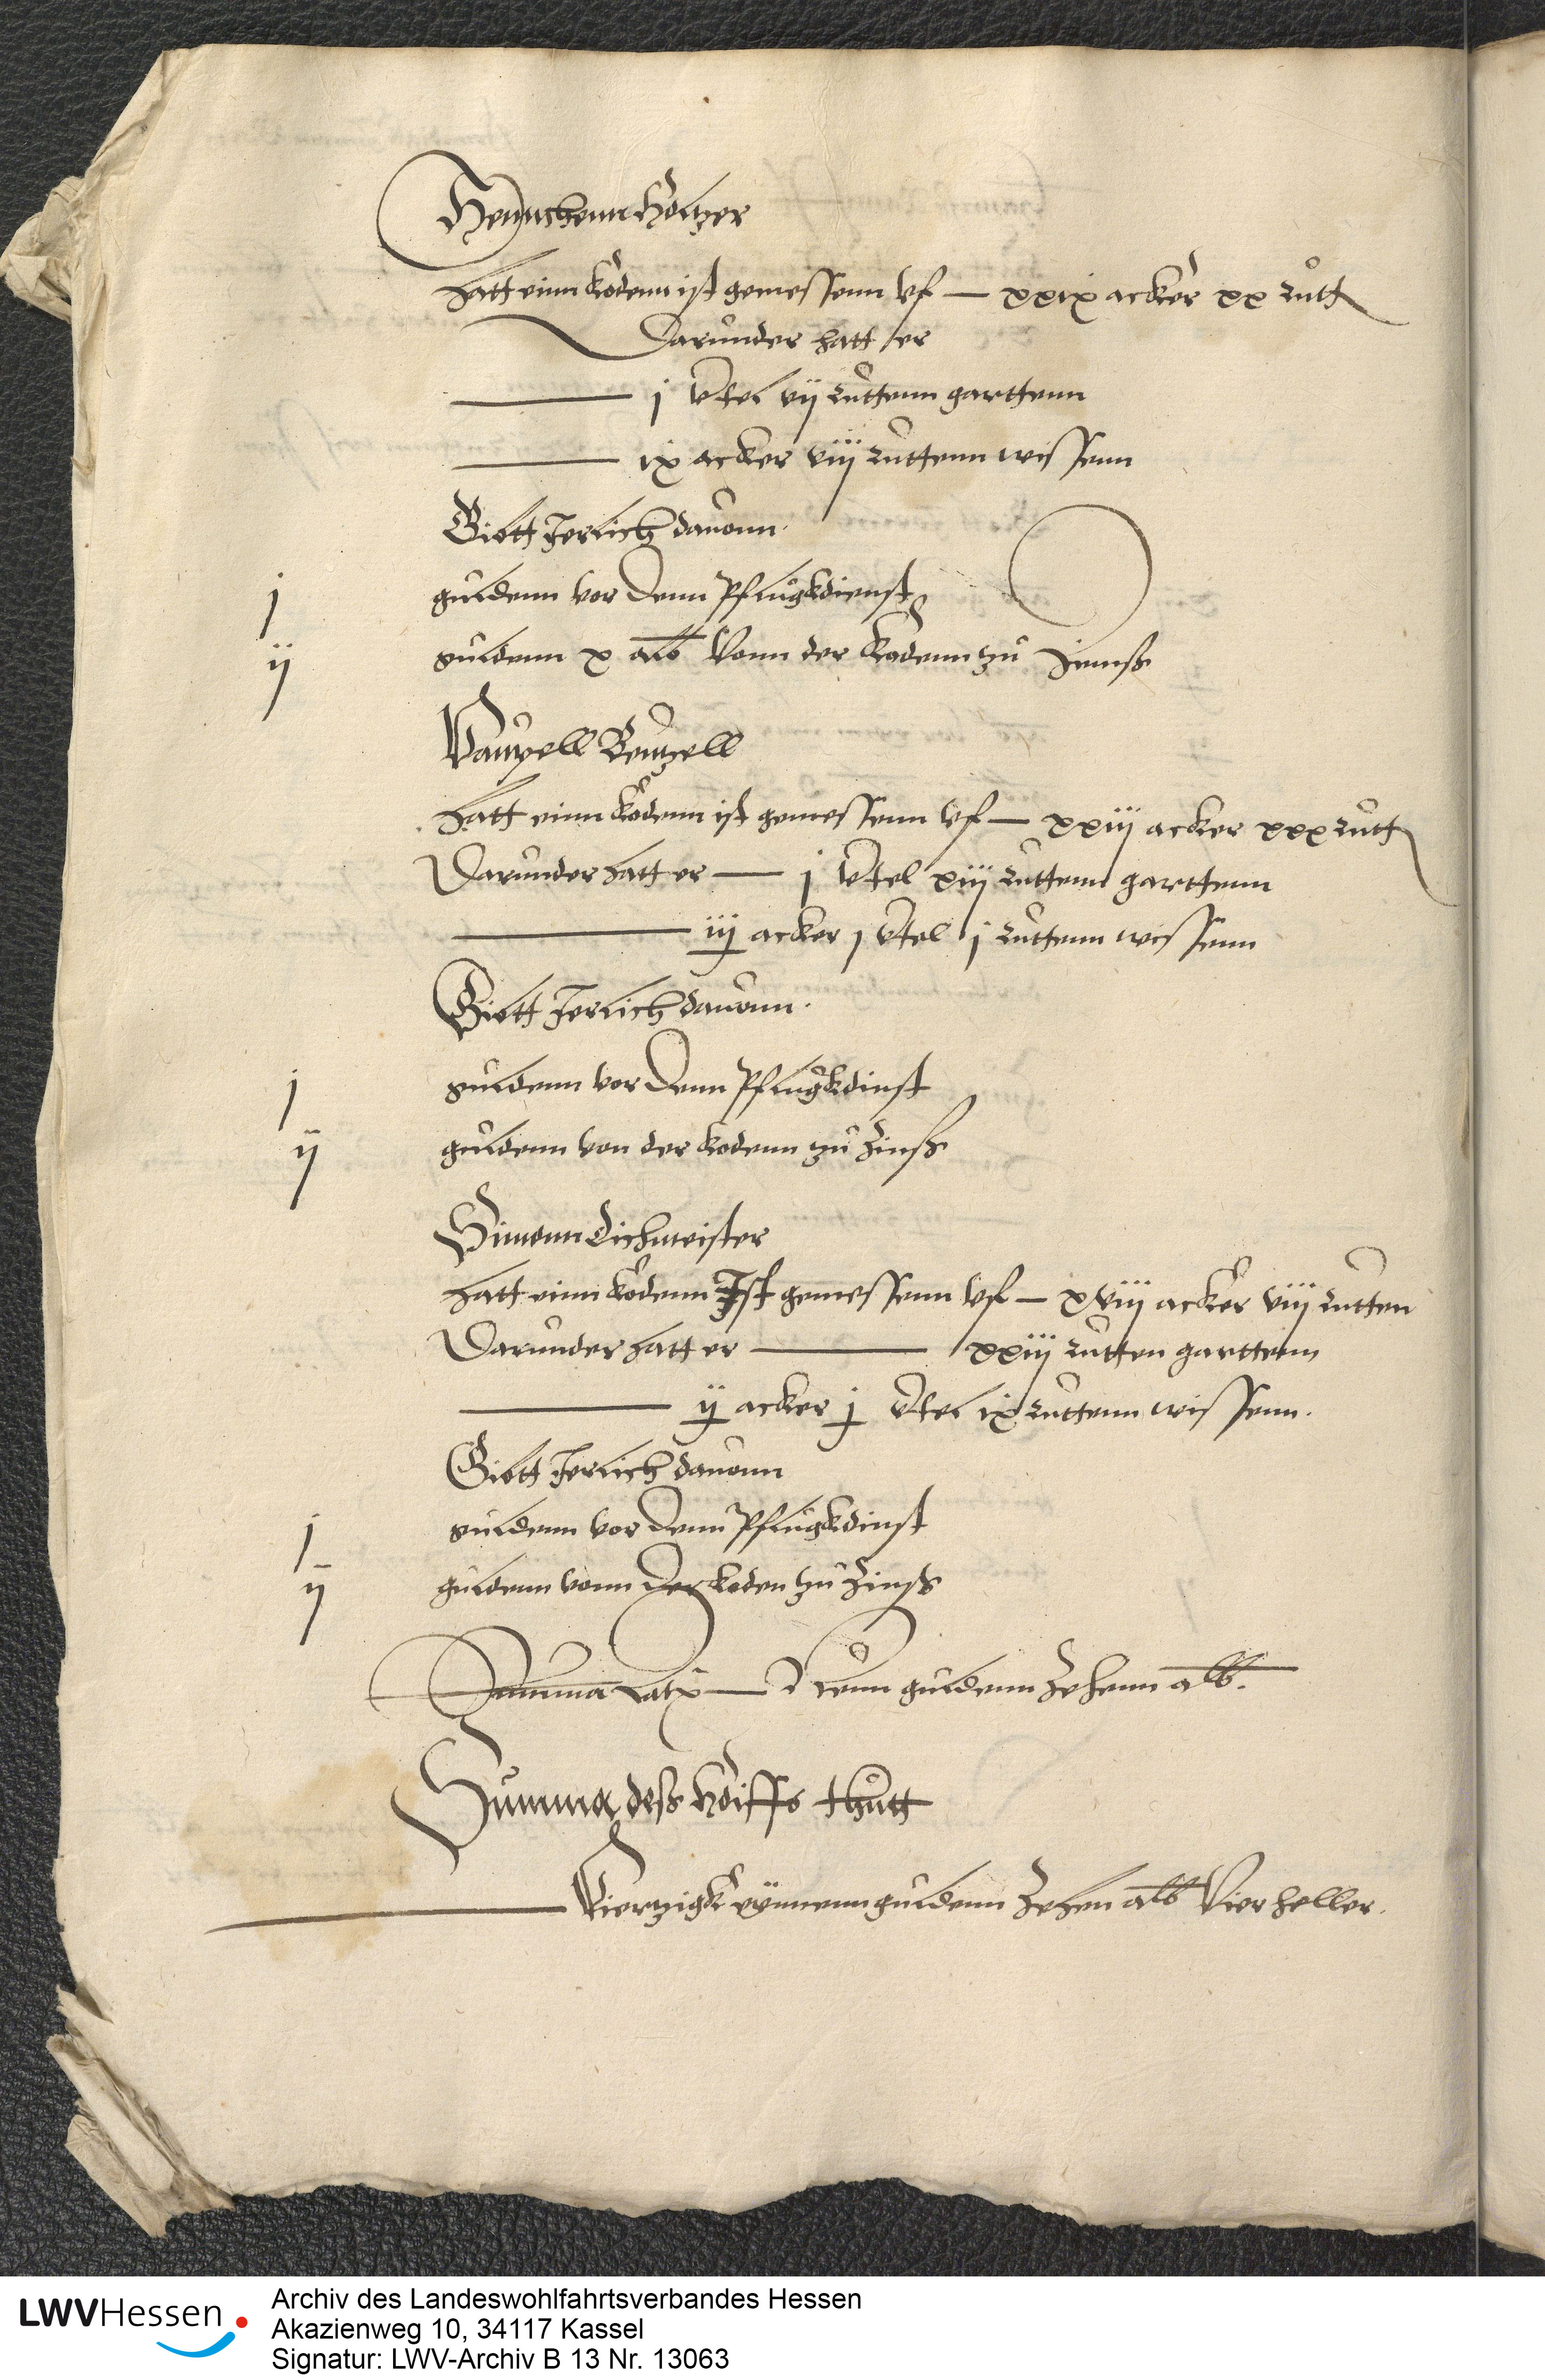 Hennchenn Holtzer
hatt einn kodenn ist gemessenn vf — xxix acker xx rutt
Darunder hatt er
— j vrtel vij ruttenn garttenn
— ix acker viij ruttenn wissenn
Gibtt Jerlich dauonn.
j guldenn vor denn Pflugkdienst
ij guldenn x alb vonn der kodenn zu zinnß
Paupell Bentzell
hatt einn kodenn ist gemessenn vf — xxiij acker xxx rutt
Darunder hatt er — j vrtel xiij ruttenn garttenn
— iij acker j vrtel j ruttenn wissenn
Gibtt Jerlich dauonn.
j guldenn vor denn Pflugkdinst
ij guldenn von der kodenn zu Zinß
Simonn Dichmeister
hatt einn kodenn Ist gemessenn vf — xviij acker viij rutten
Darunder hatt er — xxiij rutten garttenn
— ij acker j vrtel ix ruttenn wissenn.
Gibtt Jerlich dauonn
j guldenn vor denn Pflugkdinst
ij guldenn vonn der koden zu Zinß
Summa latz — Neun guldenn Zehenn alb.
Summa deß thutt
— Viertzigk guldenn Zehen alb Vier heller.
LWVHessen
Archiv des Landeswohlfahrtsverbandes Hessen
Akazienweg 10, 34117 Kassel
Signatur: LWV-Archiv B 13 Nr. 13063